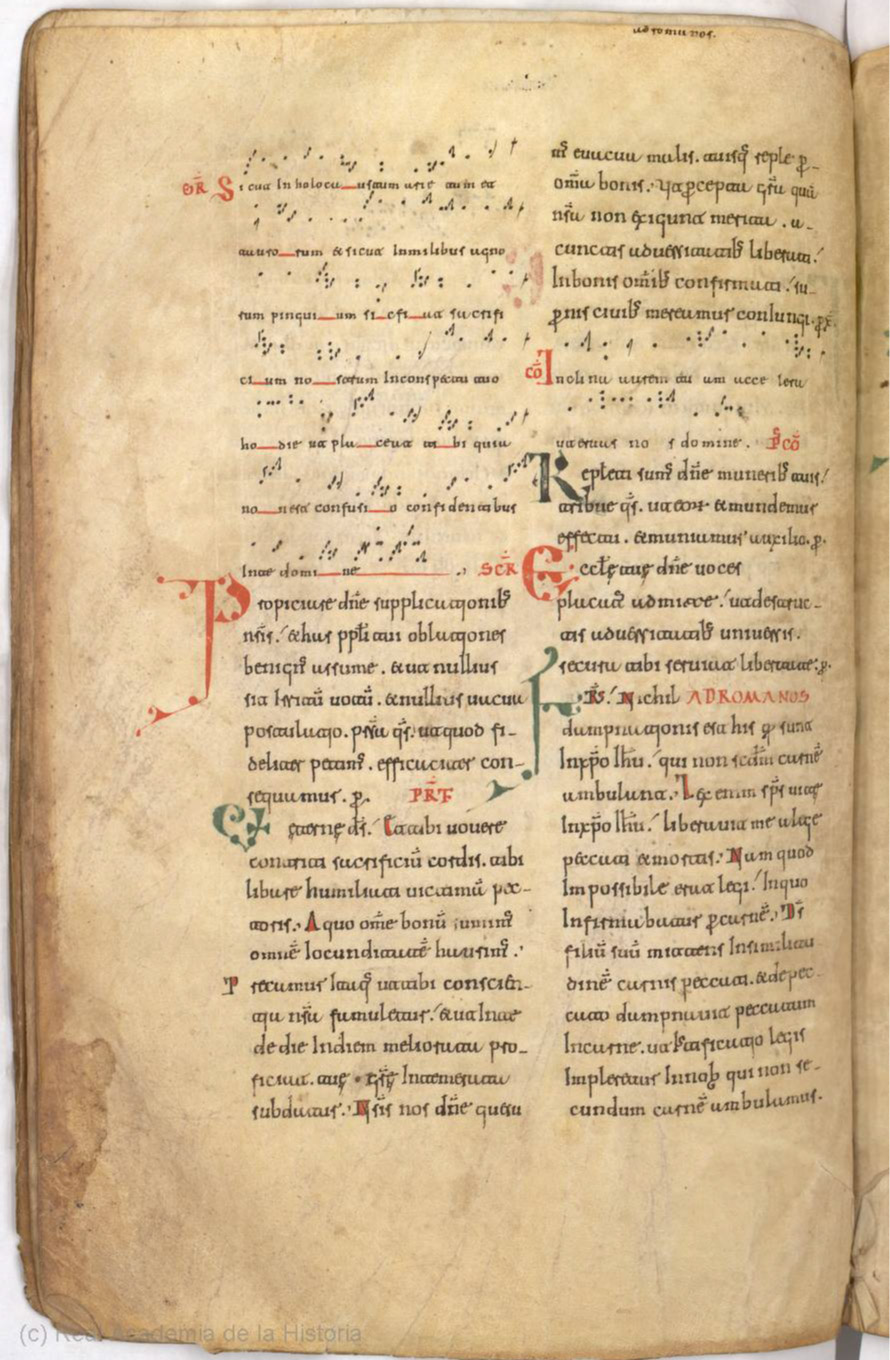 adromanos.
OFR̄ Sicut In holocaustum arietum et
tauro rum & sicut Inmilibus agno
rum pingui um si cfi at sacrifi
ci um no strum Inconspectu tuo
ho die ut pla ceat ti bi quia
no nest confusi o confidentibus
Inte domi ne. SCR̄
Propiciare dñe supplicationib;
nr̄is. & has ppłi tui oblationes
benigns̄ assume. & ut nullius
sit Irritū uotū. & nullius uacua
postulatio. pr̄sta qs̄. ut quod fi-
deliter petims̄. efficaciter con-
sequamur. p. PRF̄
Et ęterne ds̄. Et tibi uouere
contriti sacrificiū cordis. tibi
libare humiliati uictimā pec-
toris. A quo om̄e bonū sumims̄
omnē Iocunditatē haurims̄.
Precamur Itaq; ut tibi consciēn-
tia nr̄a famuletur. & ut Inte
de die Indiem meliorata pro-
ficiat. tuę grę Intemerata
subdatur. Nr̄is nos dñe quesu
ms̄ euacua malis. tuisq; reple p-
omīa bonis. Ut pcepta grā quā
nr̄a non exigunt merita. a-
cunctis aduersitatib; liberati.
Inbonis omīb; confirmati. su-
pnis ciuib; mereamur coniungi. px̄
CŌ Inclina aurem tu am acce lera
ut eruas no s domine. P̄ CŌ
Repleti sums̄ dñe munerib; tuis.
tribue qs̄. ut eor & mundemur
effectu. & muniamur auxilio. p.
Eccłę tuę dñe uoces
placats̄ admitte. ut destruc-
tis aduersitatib; uniuersis.
secura tibi seruiat libertate. p.
FR̄S. Nichil ADROMANOS
dampnationis est his q; sunt
Inxpo Ihū. qui non scd̄m carnē
ambulant. Lex enim sps̄ uitę
Inxpo Ihū. liberauit me a lege
peccati & mortis. Nam quod
Impossibile erat legi. Inquo
Infirmabatur pcarnē. Ds̄
filiū suū mittens Insimilitu
dinē carnis peccati. & depec-
cato dampnauit peccatum
Incarne. ut Iustificatio legis
Impleretur Innob; qui non se-
cundum carnē ambulamus.
(c) Real Academia de la Historia